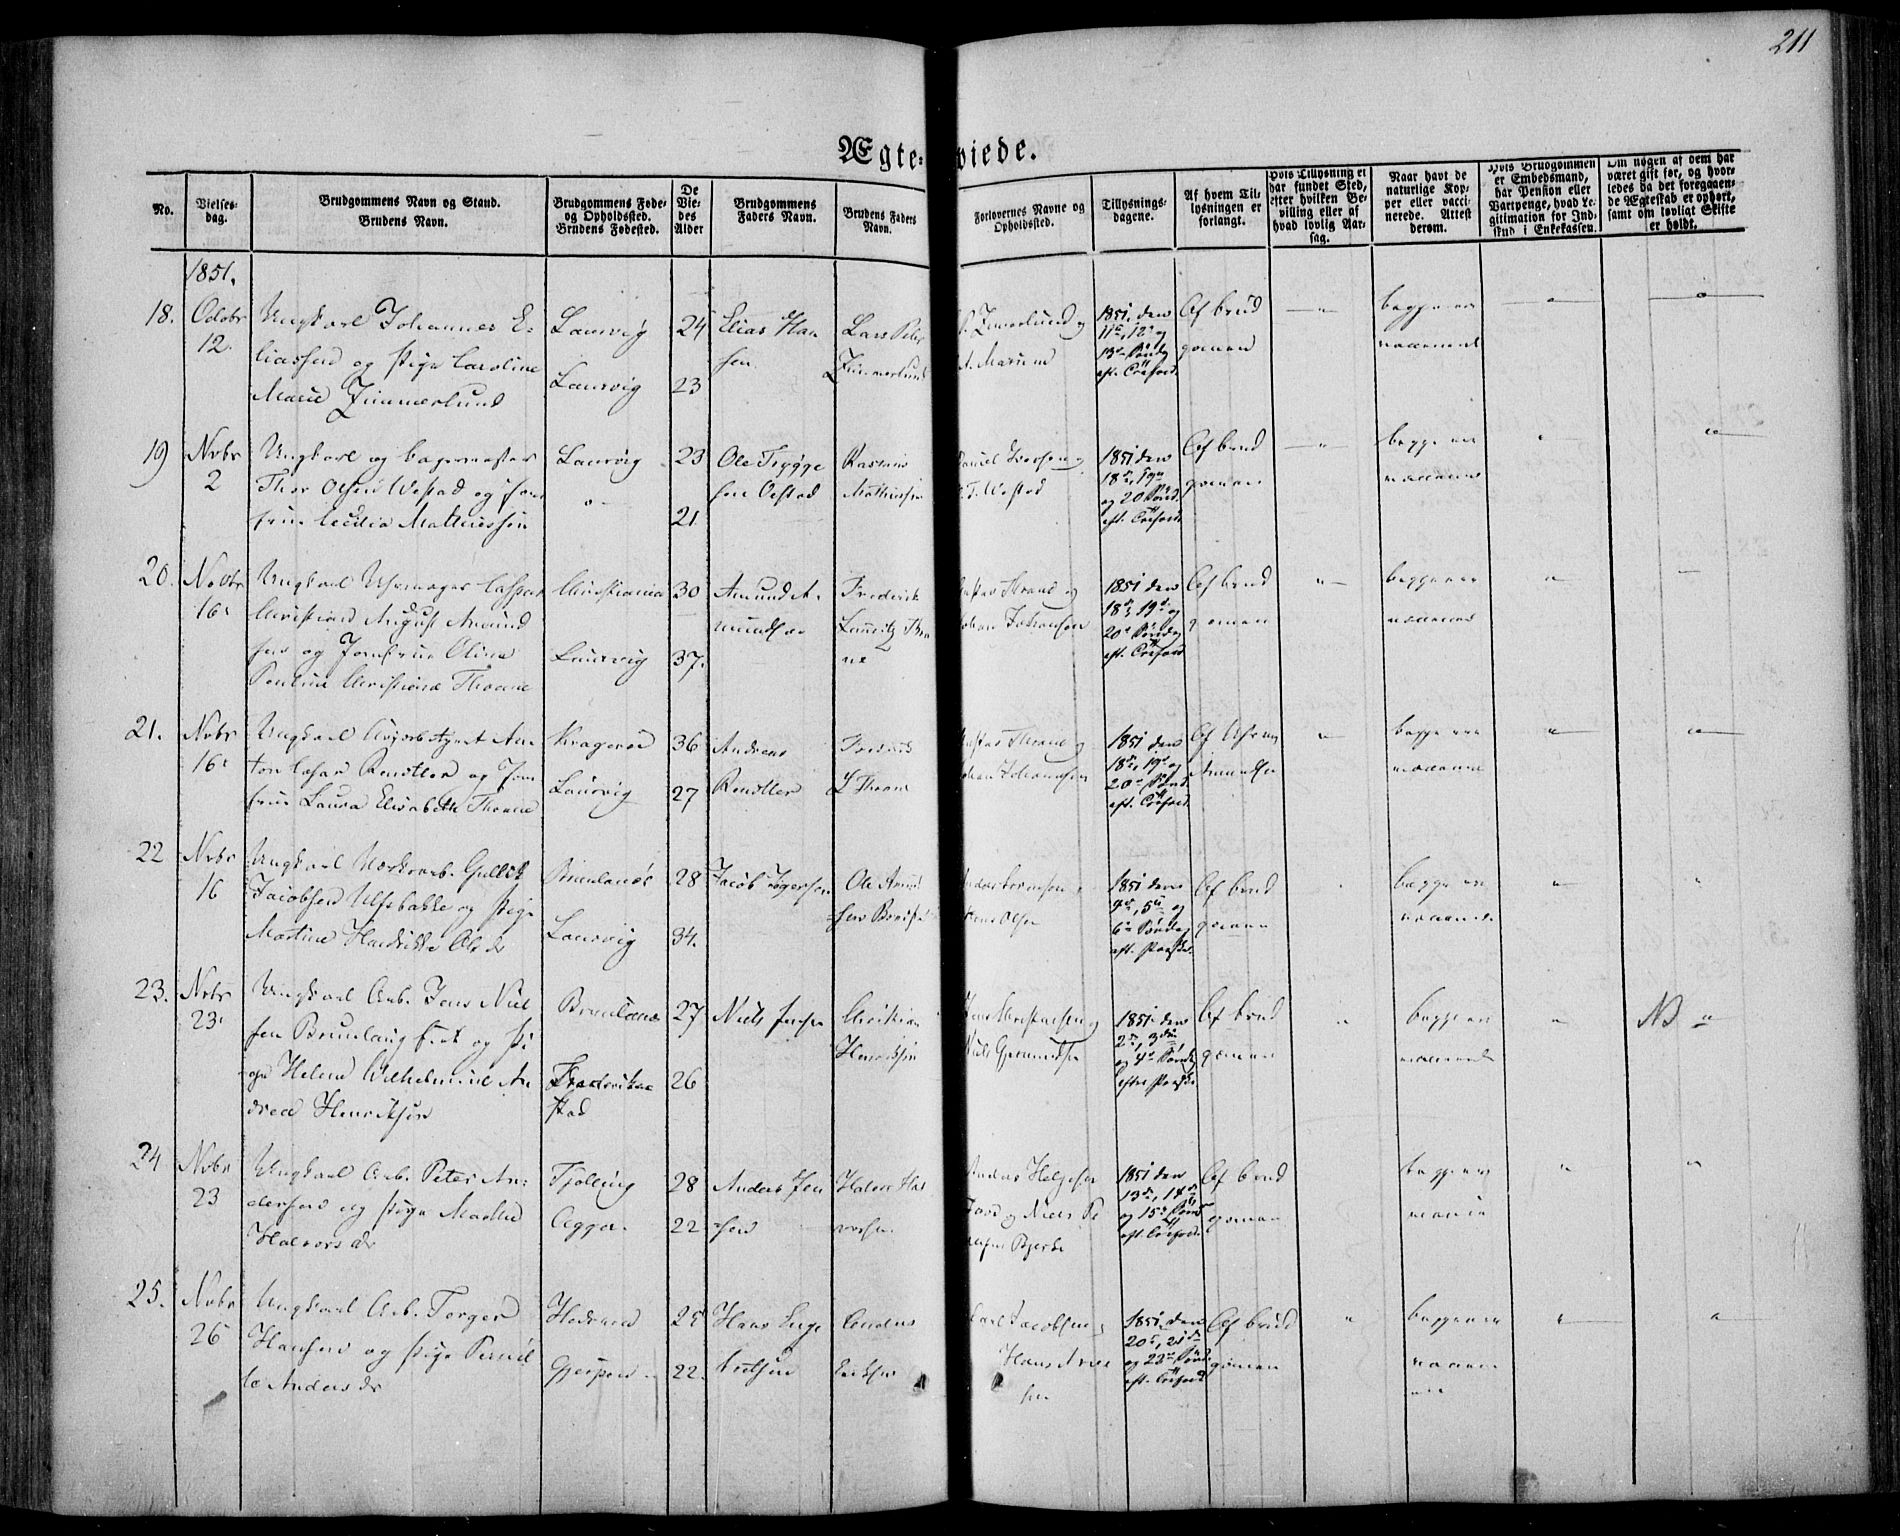 211
Ægte-viede.
No.
Vielses-
dag.
Brudgommens Navn og Stand.
Brudens Navn.
Brudgommens Føde-
og Opholdssted.
Brudens Fødested.
De
Vie-
des
Alder
Brudgommens
Faders Navn.
Brudens Faders
Navn.
Forlovernes Navne og
Opholdssted.
Tillysnings-
dagene.
Af hvem Til-
lysningen er
forlangt.
Hvis Tillysning ei
har fundet Sted,
efter hvilken Be-
villing eller af
hvad lovlig Aar-
sag.
Naar havt de
naturlige Kop-
per eller vacci-
nerede. Attest
derom.
Hvis Brudgommen
er Embedsmand,
har Pension eller
Vartpenge, hvad Le-
gitimation for Ind-
skud i Enkekassen.
Om nogen af dem har
været gift før, og hvor-
ledes da det foregaaen-
de Ægteskab er ophørt,
samt om lovligt Skifte
er holdt.
1851.
18.
Octobr
12.
Ungkarl Johannes E-
liassen og Pige Caroline
Marie Zimmerlund
Laurvig
Laurvig
24
23
Elias Han
sen
Lars Peter
Zimmerlund
Zimmerlund og
1851. den
11te, 12te og
13de Sønd
eft. Trefold.
Af brud
gomen
begge ere
vaccinerede
19
Novbr
2
Ungkarl og bagermester
Thor Olsen Westad og Jom
frue Cecilia Mathiesen
Laurvig
23
21
Ole Trygge
sen Vestad
Rasmus
Mathiesen
Iversen og
T. Westad
1851 den
18de, 19de
og 20 Sønd.
eft. Trefold.
Af brud
gomen
begge ere
vaccinerede
20.
Novbr
16.
Ungkarl Uhrmager Casper
Christian August Amund
sen og Jomfrue Olina
Pauline Christiane Thrane
Christiania
Laurvig
30
37.
Amund A-
mundsen
Frederik
Lauritz Thra
ne
Gustav Thrane og
Johan Johansen
1851 den
18de, 19de og
20de Søndag
eft. Trefold.
Af brud
gomen
begge ere
vaccinered
21.
Novbr
16.
Ungkarl An
ton Cesar Rendtler og Jom
frue Laura Elisabeth Thrane
Kragerøe
Laurvig
36
27
Andreas
Rendtler
Fredrik
L Thrane
Gustav Thrane og
Johan Johansen
1851 den
18de, 19de og
20de Sønd.
eft. Trefold.
Af Uhrm
Amundsen
begge ere
vaccinered
22
Novbr
16
Ungkarl Værksarb. Gullik
Jacobsen Ulfsbakke og Pige
Martine Hendrikke Olsdr
Brunlanes
Laurvig
28
34.
Jacob
Ole Amund
sen
Anders
Olsen
1851 den
4de, 5te og
6te Søndag
eft. Paaske.
Af brud
gomen
begge ere
vaccinerede
23.
Novbr
23.
Ungkarl Arb. Jens Niel
sen og Pi
ge Helene Wilhelmine An
drea Henriksen
Brunlanes
Frederiks
stad
27
26
Niels Jensen
Christian
Henriksen
Jens Christensen og
Niels
1851. den
2den, 3die
og 4de Sønd
efter Paaske.
Af brud
gomen
begge ere
vaccinerede
NB
24
Novbr
23
Ungkarl Arb. Peter An-
dersen og Pige Maren
Halvorsdr
Tjølling
Agger.
28
22
Anders Jen
sen
Halvor Hal
vorsen
Anders Helgesen
og Niels Pe
Bjerke
1851 den
13de, 14de
og 15de Sønd
eft. Trefold.
Af brud
gomen
begge ere
vaccin
25.
Novbr
26
Ungkarl Arb. Torger
Hansen og Pige Pernil
le Andersdr
Hedrum
Gjerpen
25
22.
Hans Inge
bretsen
Anders
Eriksen
Carl Jacobsen og
Hans Arne
sen
1851. den
20de, 21de
og 22de Sønd
eft. Trefold.
Af brud
gomen
begge ere
vaccine